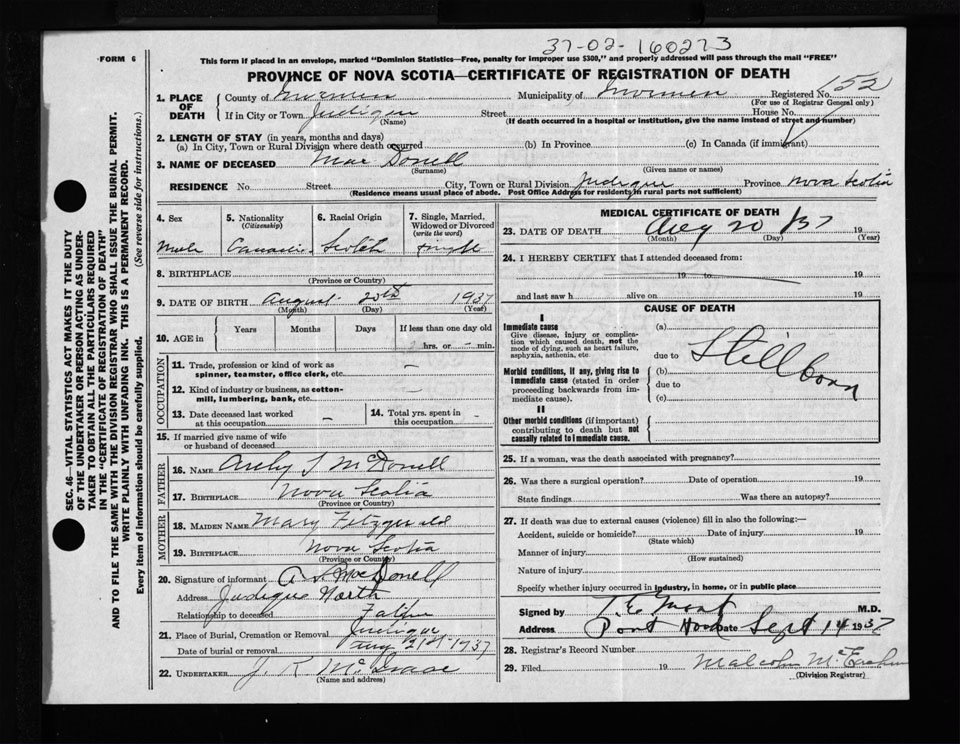 37-02-160273
FORM 6
This form if placed in an envelope, marked "Dominion Statistics—Free, penalty for improper use $300," and properly addressed will pass through the mail "FREE"
PROVINCE OF NOVA SCOTIA—CERTIFICATE OF REGISTRATION OF DEATH
SEC. 46—VITAL STATISTICS ACT MAKES IT THE DUTY
OF THE UNDERTAKER OR PERSON ACTING AS UNDER-
TAKER TO OBTAIN ALL THE PARTICULARS REQUIRED
IN THE "CERTIFICATE OF REGISTRATION OF DEATH"
AND TO FILE THE SAME WITH THE DIVISION REGISTRAR WHO SHALL ISSUE THE BURIAL PERMIT.
WRITE PLAINLY WITH UNFADING INK. THIS IS A PERMANENT RECORD.
Every item of information should be carefully supplied. (See reverse side for instructions.)
1. PLACE OF DEATH
County of Municipality of Registered No. 152
(For use of Registrar General only)
If in City or Town Judique Street House No.
(Name) (If death occurred in a hospital or institution, give the name instead of street and number)
2. LENGTH OF STAY (in years, months and days)
(a) In City, Town or Rural Division where death occurred (b) In Province (c) In Canada (if immigrant)
3. NAME OF DECEASED Mac Donell
(Surname) (Given name or names)
RESIDENCE No. Street City, Town or Rural Division Judique Province Nova Scotia
(Residence means usual place of abode. Post Office Address for residents in rural parts not sufficient)
4. Sex 5. Nationality (Citizenship) 6. Racial Origin 7. Single, Married, Widowed or Divorced (write the word)
Male Scotch single
8. BIRTHPLACE
(Province or Country)
9. DATE OF BIRTH August 20th 1937
(Month) (Day) (Year)
10. AGE in Years Months Days If less than one day old
hrs. or - min.
OCCUPATION
11. Trade, profession or kind of work as spinner, teamster, office clerk, etc. —
12. Kind of industry or business, as cotton-mill, lumbering, bank, etc. —
13. Date deceased last worked at this occupation — 14. Total yrs. spent in this occupation -
15. If married give name of wife or husband of deceased
FATHER
16. NAME J McDonell
17. BIRTHPLACE Nova Scotia
(Province or Country)
MOTHER
18. MAIDEN NAME Mary Fitzgerald
19. BIRTHPLACE Nova Scotia
(Province or Country)
20. Signature of informant MacDonell
Address Judique North
Relationship to deceased Father
21. Place of Burial, Cremation or Removal Judique
Date of burial or removal Aug 21st 1937
22. UNDERTAKER J R McIsaac
(Name and address)
MEDICAL CERTIFICATE OF DEATH
23. DATE OF DEATH Aug 20 37 19
(Month) (Day) (Year)
24. I HEREBY CERTIFY that I attended deceased from:
19 to 19
and last saw h alive on 19
CAUSE OF DEATH
I
Immediate cause
Give disease, injury or complica-
tion which caused death, not the
mode of dying, such as heart failure,
asphyxia, asthenia, etc
(a)
due to Stillborn
Morbid conditions, if any, giving rise to
immediate cause (stated in order
proceeding backwards from im-
mediate cause).
(b)
due to
(c)
II
Other morbid conditions (if important)
contributing to death but not
causally related to immediate cause.
25. If a woman, was the death associated with pregnancy?
26. Was there a surgical operation? Date of operation 19
State findings Was there an autopsy?
27. If death was due to external causes (violence) fill in also the following:—
Accident, suicide or homicide? Date of injury 19
(State which)
Manner of injury
(How sustained)
Nature of injury
Specify whether injury occurred in industry, in home, or in public place
Signed by M.D.
Address Port Hood Date Sept 14 1937
28. Registrar's Record Number
29. Filed 19 Malcolm
(Division Registrar)